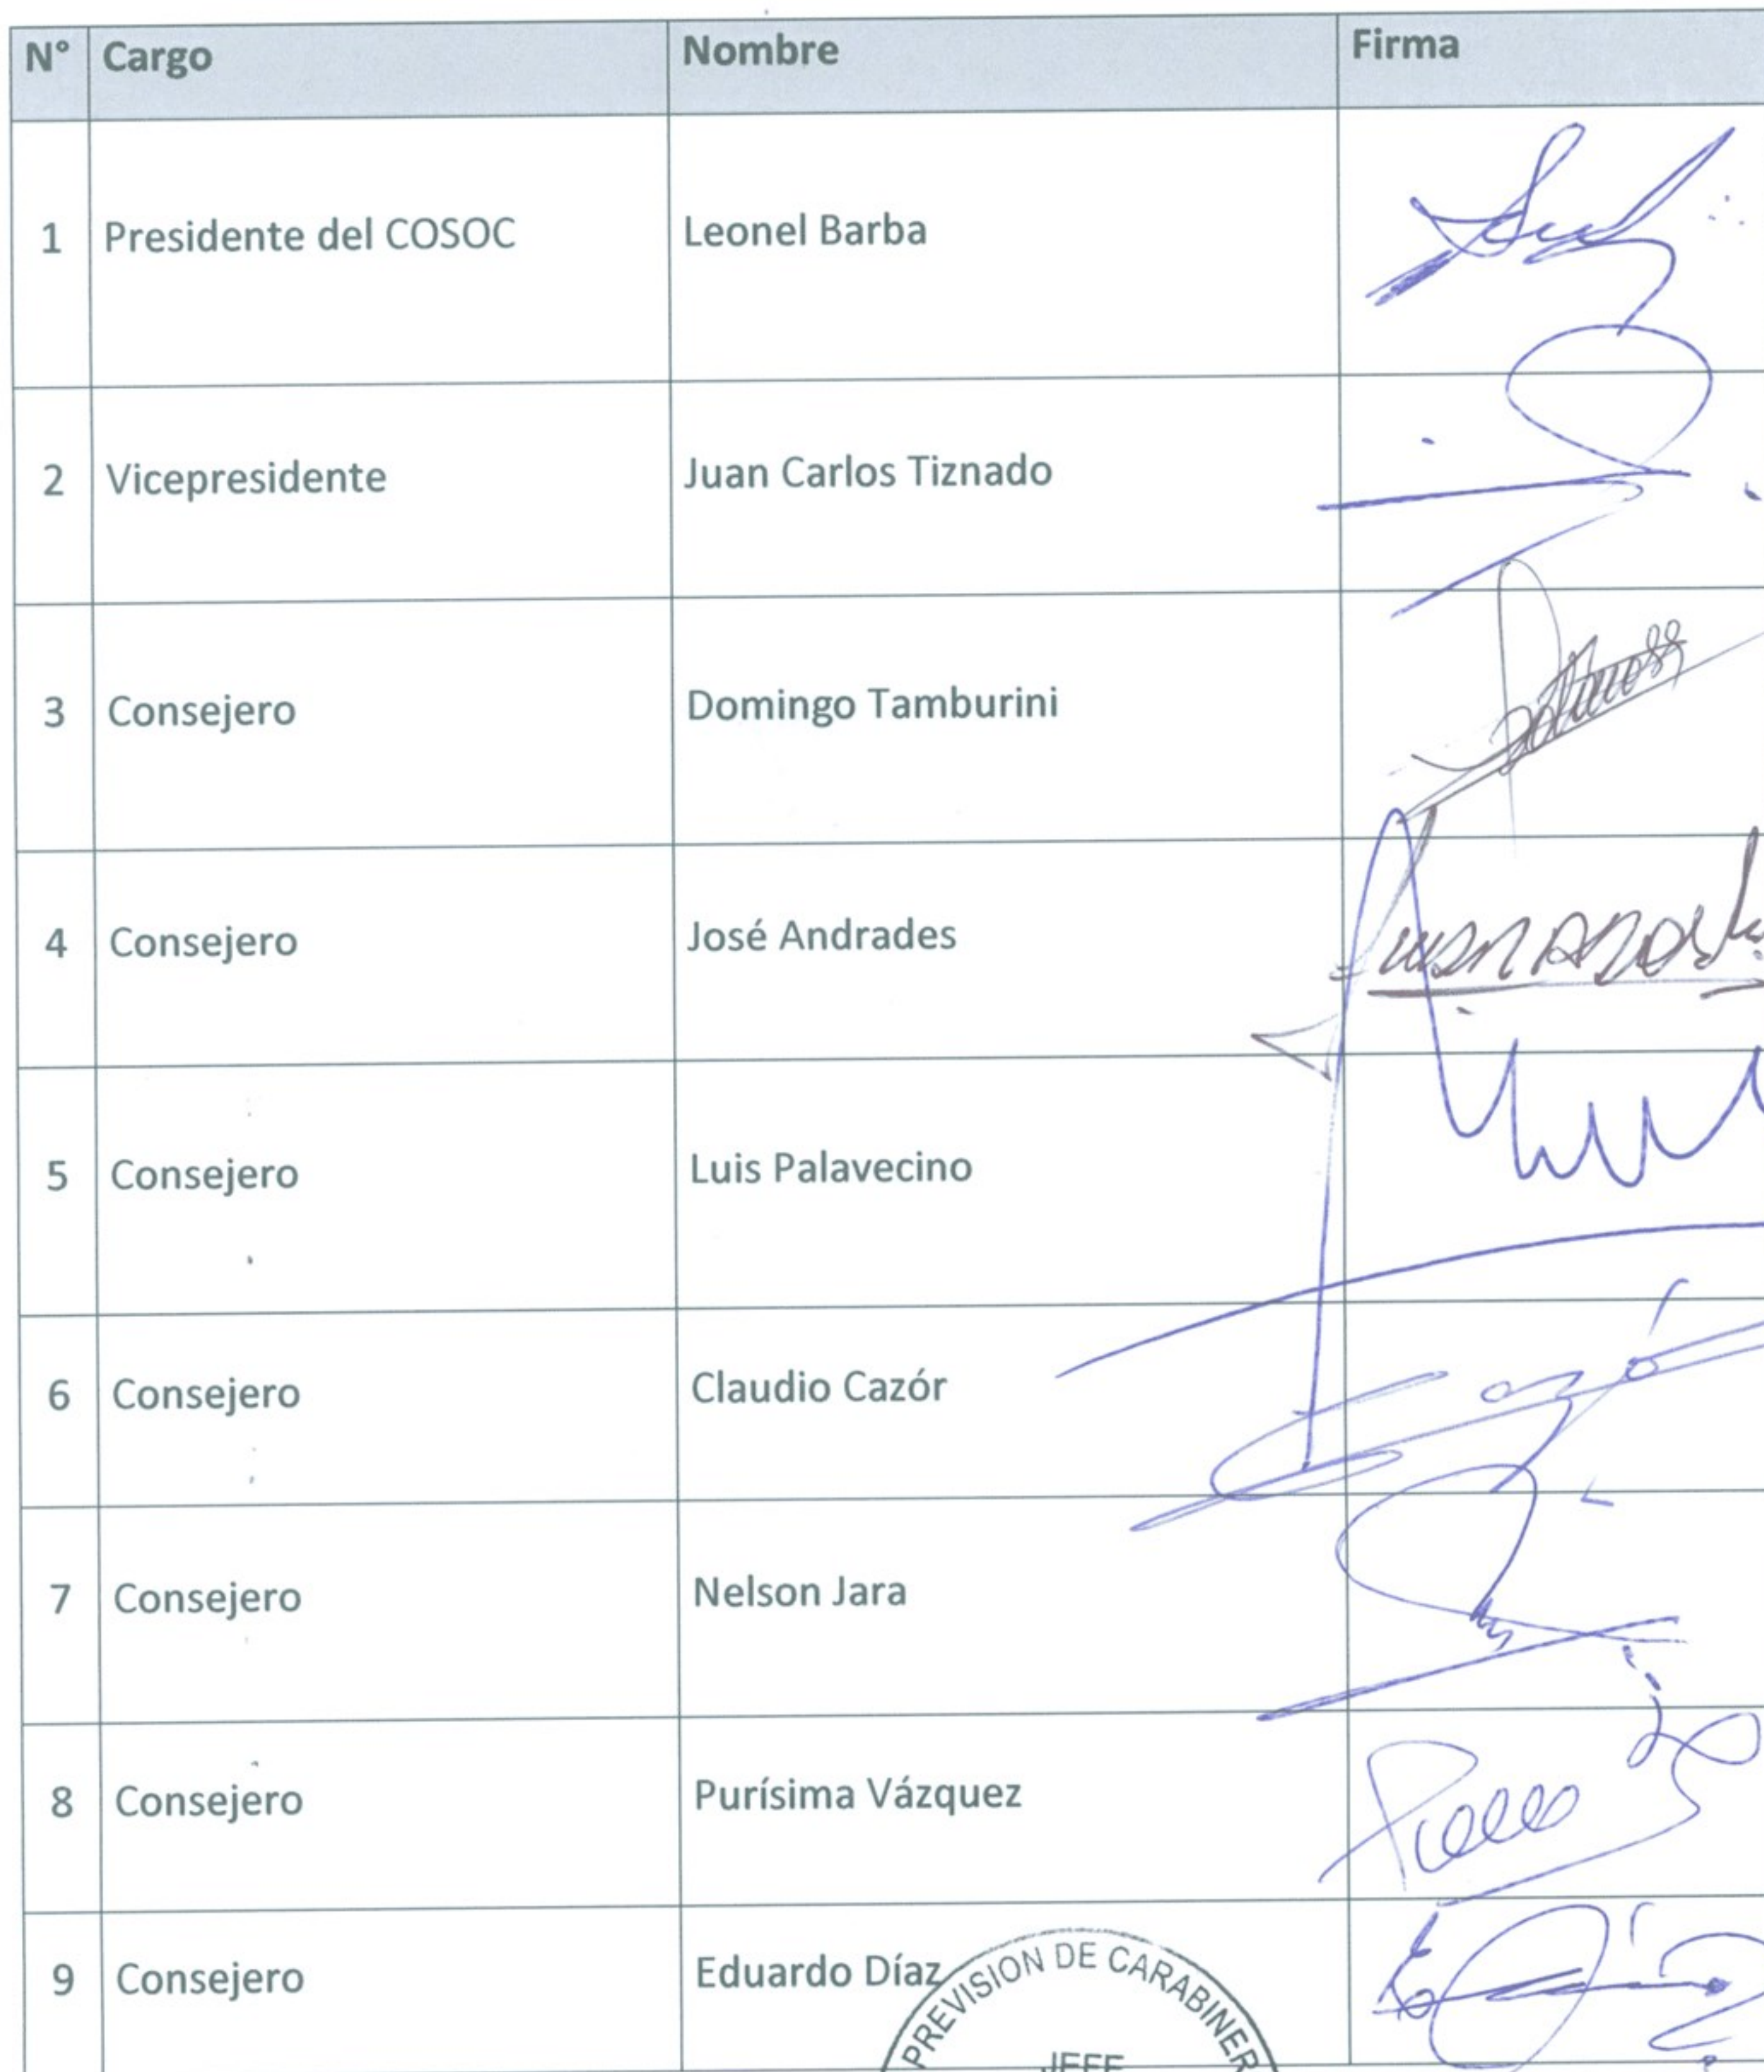 N° Cargo Nombre Firma
1 Presidente del COSOC Leonel Barba
2 Vicepresidente Juan Carlos Tiznado
3 Consejero Domingo Tamburini
4 Consejero José Andrades
5 Consejero Luis Palavecino
6 Consejero Claudio Cazór
7 Consejero Nelson Jara
8 Consejero Purísima Vázquez
9 Consejero Eduardo Díaz
PREVISION DE CARABINER
JEFE